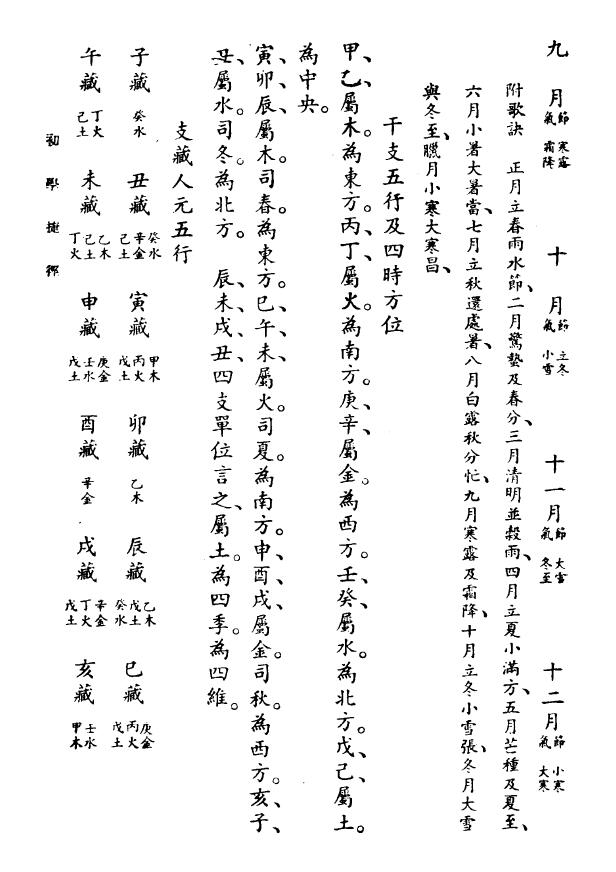 九月節寒露氣霜降 十月節立冬氣小雪 十一月節大雪氣冬至 十二月節小寒氣大寒
附歌訣 正月立春雨水節、二月驚蟄及春分、三月清明並穀雨、四月立夏小滿方、五月芒種及夏至、
六月小暑大暑當、七月立秋還處暑、八月白露秋分忙、九月寒露及霜降、十月立冬小雪張、冬月大雪
與冬至、臘月小寒大寒昌、
干支五行及四時方位
甲、乙、屬木。為東方。丙、丁、屬火。為南方。庚、辛、屬金。為西方。壬、癸、屬水。為北方。戊、己、屬土。
為中央。
寅、卯、辰、屬木。司春。為東方。巳、午、未、屬火。司夏。為南方。申、酉、戌、屬金。司秋。為西方。亥、子、
丑、屬水。司冬。為北方。 辰、未、戌、丑、四支單位言之、屬土。為四季。為四維。
支藏人元五行
子藏癸水 丑藏癸水辛金己土 寅藏甲木丙火戊土 卯藏乙木 辰藏乙木戊土癸水 巳藏庚金丙火戊土
午藏丁火己土 未藏乙木己土丁火 申藏庚金壬水戊土 酉藏辛金 戌藏辛金丁火戊土 亥藏壬水甲木
初學捷徑